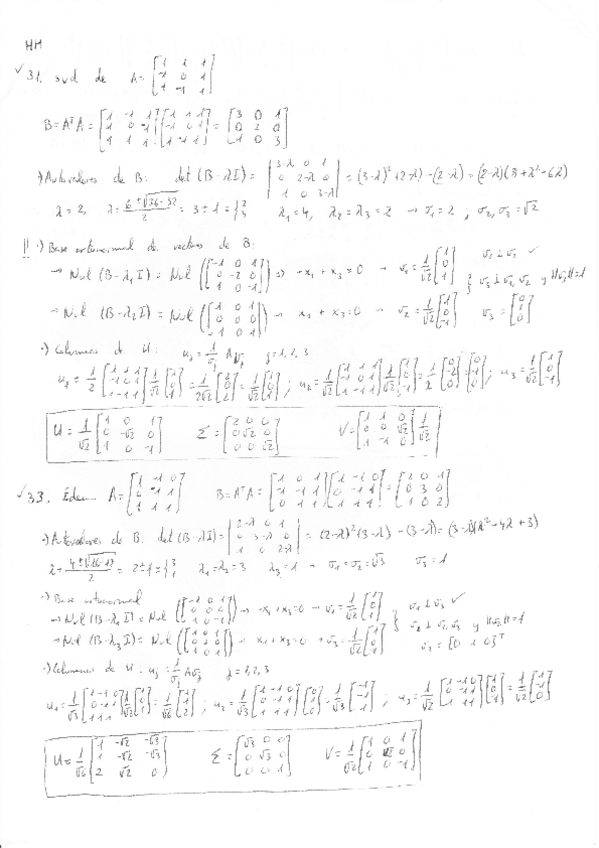 HH
✓31. svd de A = [1 1 1; -1 0 1; 1 -1 1]
B = AᵀA = [1 -1 1; 1 0 -1; 1 1 1] [1 1 1; -1 0 1; 1 -1 1] = [3 0 1; 0 2 0; 1 0 3]
·) Autovalores de B: det (B-λI) = |3-λ 0 1; 0 2-λ 0; 1 0 3-λ| = (3-λ)²(2-λ) - (2-λ) = (2-λ)(8+λ²-6λ)
λ = 2, λ = (6±√36-32)/2 = 3±1 = {4 2 λ₁=4, λ₂=λ₃=2 → σ₁=2 ; σ₂,σ₃=√2
!! ·) Base ortonormal de vectores de B:
→ Nul (B-λ₁I) = Nul ([-1 0 1; 0 -2 0; 1 0 -1]) → -x₁+x₃=0 → v₁ = 1/√2 [1; 0; 1] v₁⊥v₂ ✓
→ Nul (B-λ₂I) = Nul ([1 0 1; 0 0 0; 1 0 1]) → x₁+x₃=0 → v₂ = 1/√2 [1; 0; -1] } v₃⊥v₁,v₂ y ||v₃||=1 v₃ = [0; 1; 0]
·) Columnas de U: uⱼ = 1/σⱼ Avⱼ j=1,2,3
u₁ = 1/2 [1 1 1; -1 0 1; 1 -1 1] 1/√2 [1; 0; 1] = 1/2√2 [2; 0; 2] = 1/√2 [1; 0; 1] ; u₂ = 1/√2 [1 1 1; -1 0 1; 1 -1 1] 1/√2 [1; 0; -1] = 1/2 [0; -2; 0] = [0; -1; 0] ; u₃ = 1/√2 [1; 0; -1]
U = 1/√2 [1 0 1; 0 -√2 0; 1 0 -1] Σ = [2 0 0; 0 √2 0; 0 0 √2] V = [1 1 0; 0 0 √2; 1 -1 0] 1/√2
✓33. Ídem. A = [1 -1 0; 0 -1 1; 1 1 1] B = AᵀA = [1 0 1; -1 -1 1; 0 1 1] [1 -1 0; 0 -1 1; 1 1 1] = [1 0 1; 0 3 0; 1 0 2]
·) Autovalores de B: det (B-λI) = |2-λ 0 1; 0 3-λ 0; 1 0 2-λ| = (2-λ)²(3-λ) - (3-λ) = (3-λ)(λ²-4λ+3)
λ = (4±√16-12)/2 = 2±1 = {3 1 λ₁=λ₂=3 λ₃=1 → σ₁=σ₂=√3 σ₃=1
·) Base ortonormal
→ Nul (B-λ₁I) = Nul ([-1 0 1; 0 0 0; 1 0 -1]) → -x₁+x₃=0 → v₁ = 1/√2 [1; 0; 1] v₁⊥v₃ ✓
→ Nul (B-λ₃I) = Nul ([1 0 1; 0 2 0; 1 0 1]) → x₁+x₃=0 → v₃ = 1/√2 [1; 0; -1] } v₂⊥v₁,v₃ y ||v₂||=1 v₂ = [0 1 0]ᵀ
·) Columnas de U: uⱼ = 1/σⱼ Avⱼ j=1,2,3
u₁ = 1/√3 [1 -1 0; 0 -1 1; 1 1 1] 1/√2 [1; 0; 1] = 1/√6 [1; 1; 2] ; u₂ = 1/√3 [1 -1 0; 0 -1 1; 1 1 1] [0; 1; 0] = 1/√3 [-1; -1; 1] ; u₃ = 1/√2 [1 -1 0; 0 -1 1; 1 1 1] [1; 0; -1] = 1/√2 [1; -1; 0]
U = 1/√6 [1 -√2 -√3; 1 -√2 -√3; 2 √2 0] Σ = [√3 0 0; 0 √3 0; 0 0 1] V = 1/√2 [1 0 1; 0 √2 0; 1 0 -1]